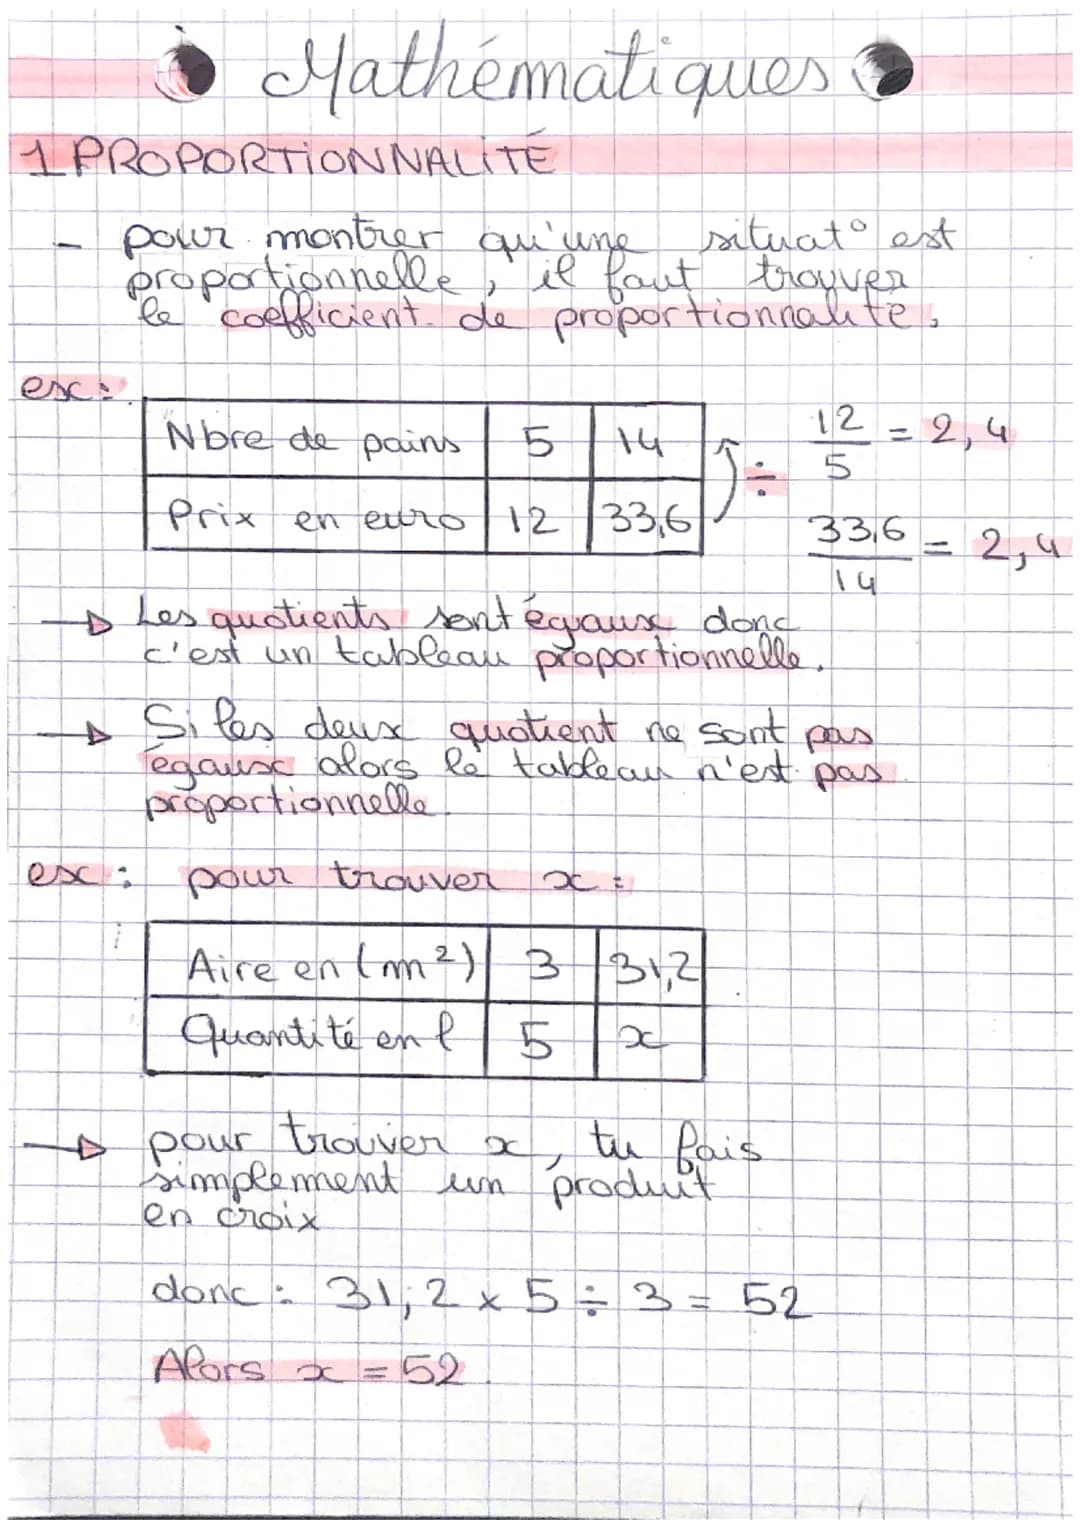 Mathématiques
1 PROPORTIONNALITÉ
- pour montrer qu'une situat° est
proportionnelle, il faut trouver
le coefficient de proportionnalité.
ex:
Nbre de pains 5 14
Prix en euro 12 33,6
÷
12/5 = 2,4
33,6/14 = 2,4
→ Les quotients sont égaux donc
c'est un tableau proportionnelle.
→ Si les deux quotient ne sont pas
égaux alors le tableau n'est pas
proportionnelle.
ex: pour trouver x:
Aire en (m²) 3 31,2
Quantité en l 5 x
→ pour trouver x, tu fais
simplement un produit
en croix
donc: 31,2 x 5 ÷ 3 = 52
Alors x = 52.